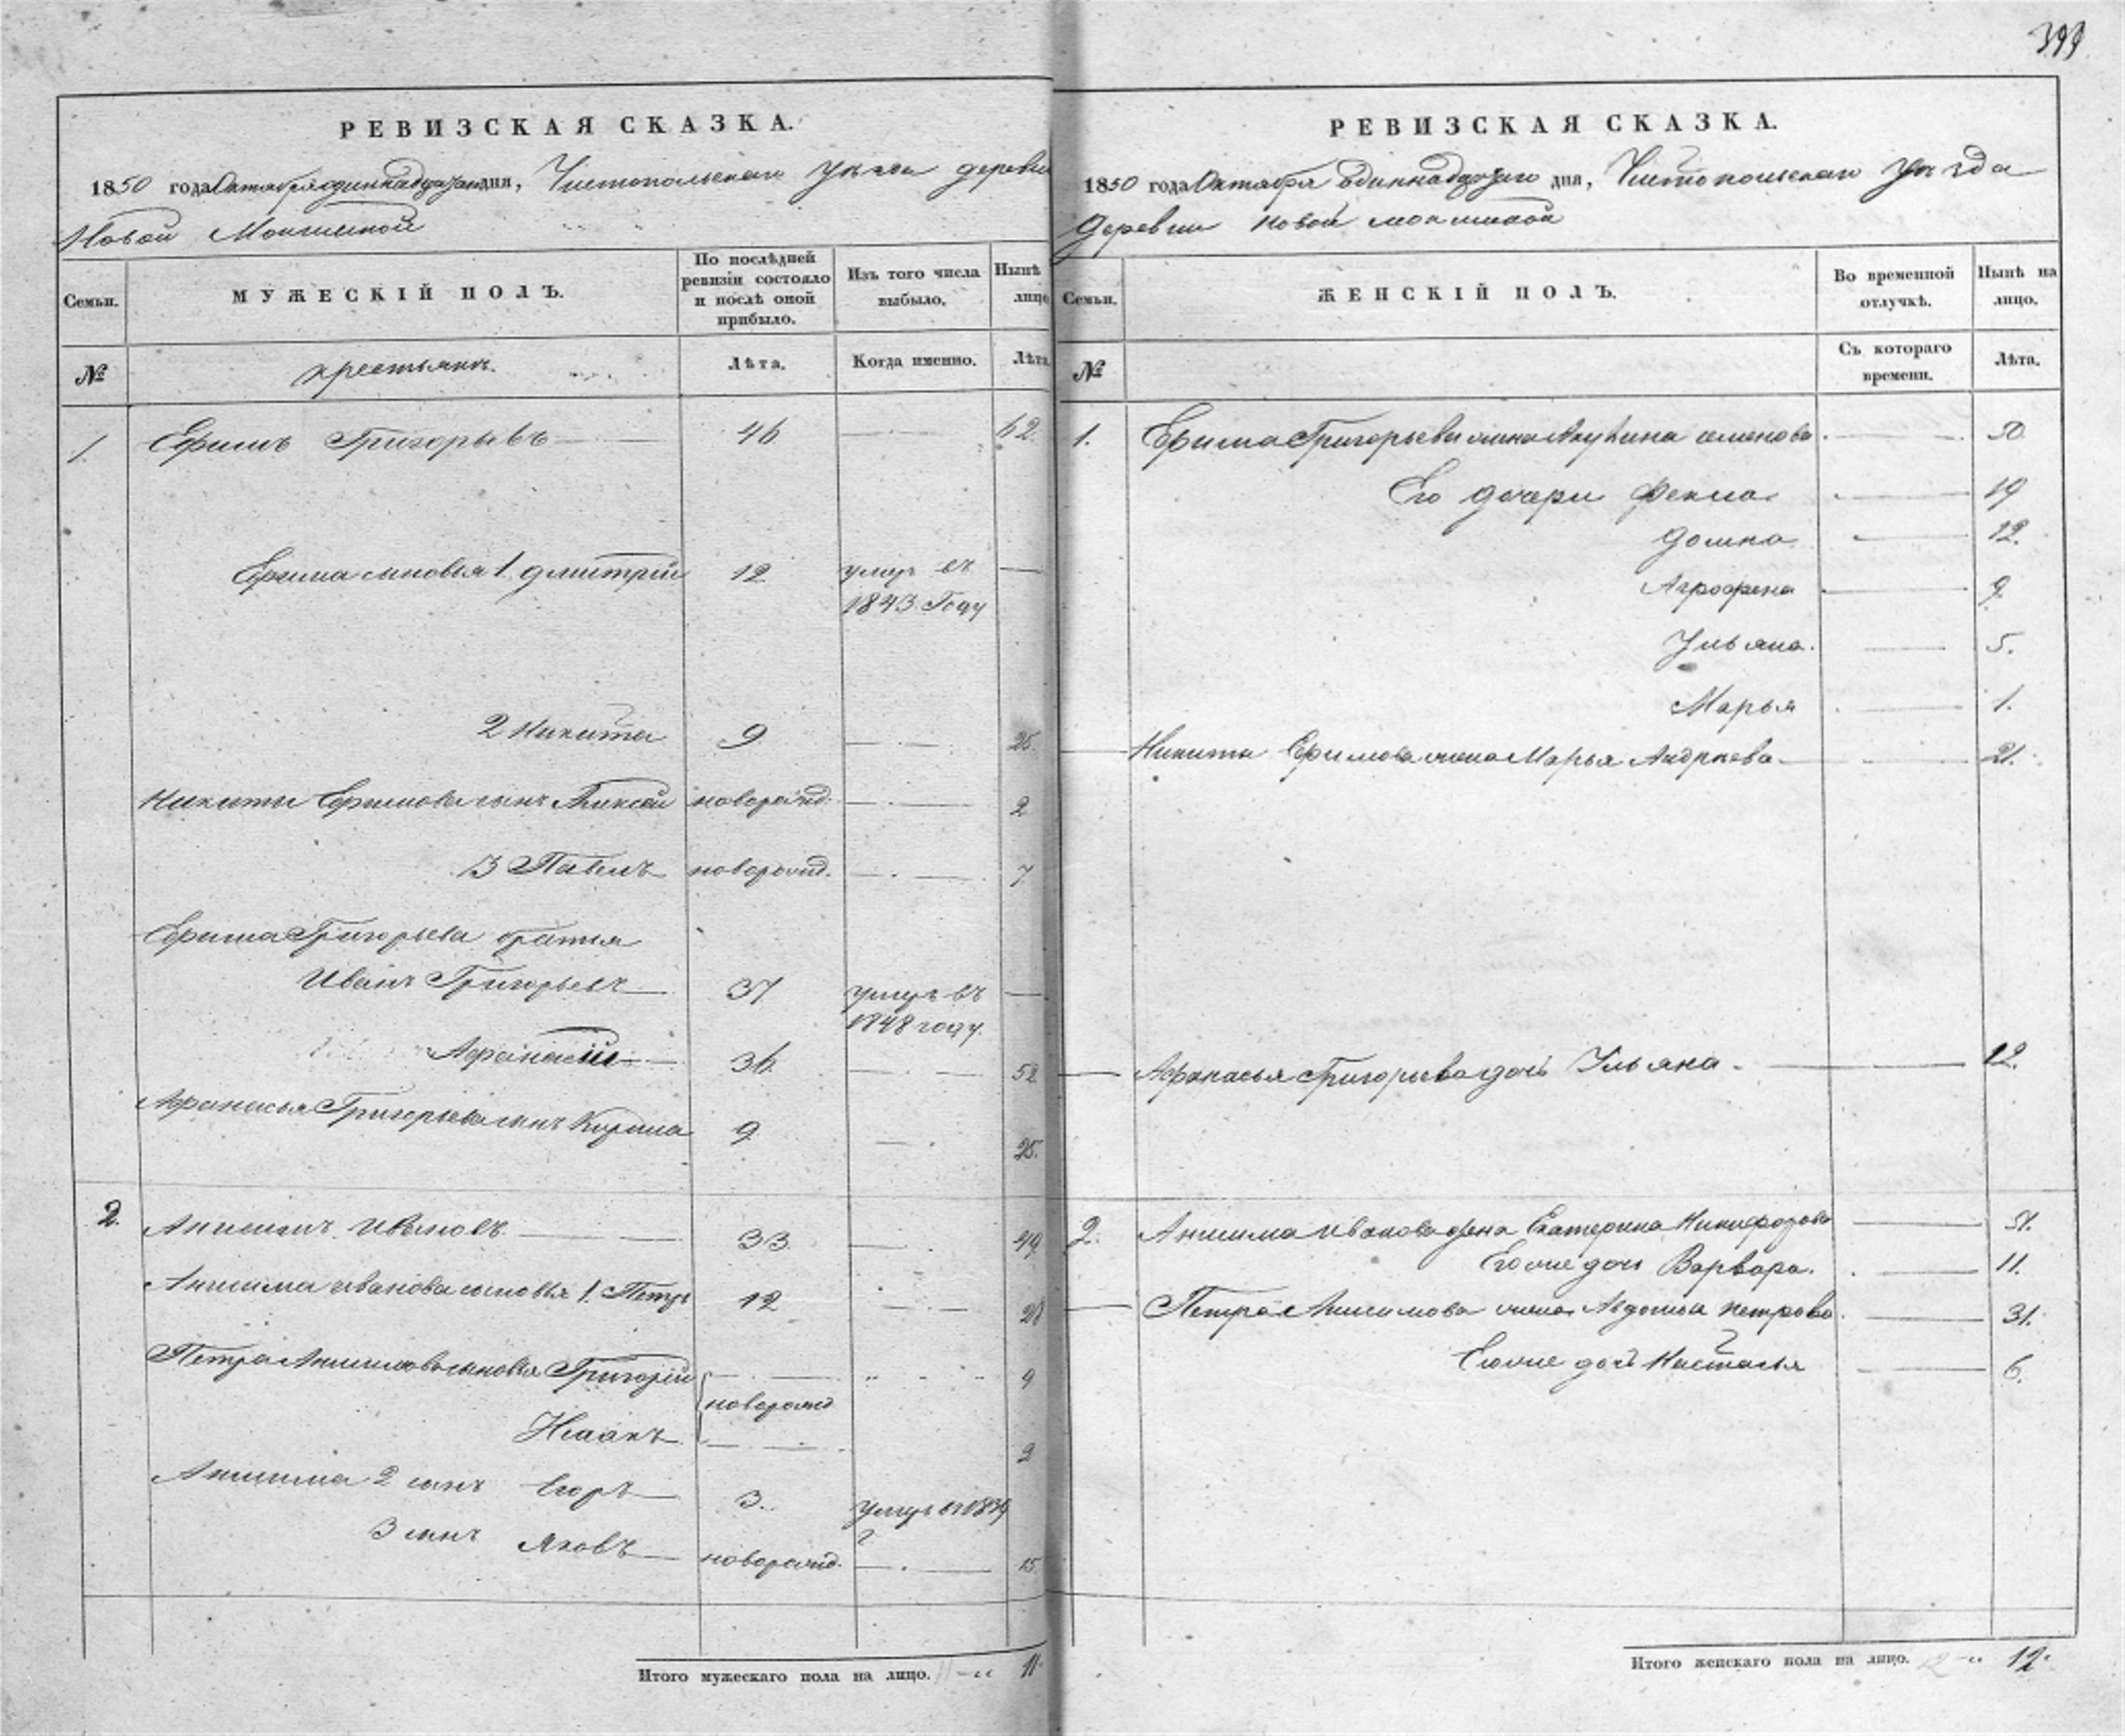 399
РЕВИЗСКАЯ СКАЗКА.
1850 года Октября одиннадцатаго дня, Чистопольскаго уѣзда деревни
Новой Мокшиной
Семьи.
МУЖЕСКІЙ ПОЛЪ.
По послѣдней ревизіи состояло и послѣ оной прибыло.
Изъ того числа выбыло.
Нынѣ лицо
№
крестьянъ.
Лѣта.
Когда именно.
Лѣта.
1. Ефимъ Григорьевъ 46 62.
Ефима сыновья 1. Дмитрій 12 умеръ въ
1843 Году
2 Никита 9 25.
Никиты Ефимова сынъ Алексѣй новорожд. 2
3 Павелъ новорожд. 7
Ефима Григорьева братья
Иванъ Григорьевъ 37 умеръ въ
1848 году.
Афанасій 36 52
Афанасья Григорьева сынъ Кирила 9 25.
2. Анисимъ Ивановъ 33 49
Анисима Иванова сыновья 1. Петръ 12 28
Петра Анисимова сыновья Григорій 9
новорожд
Исаакъ 2
Анисима 2 сынъ Егоръ 3. умеръ въ 1839
г
3 сынъ Яковъ новорожд. 15
Итого мужескаго пола на лицо. 11.
РЕВИЗСКАЯ СКАЗКА.
1850 года Октября одиннадцатаго дня, Чистопольскаго уѣзда
деревни Новой Мокшиной
Семьи.
ЖЕНСКІЙ ПОЛЪ.
Во временной отлучкѣ.
Нынѣ на лицо.
№
Съ котораго времени.
Лѣта.
1. Ефима Григорьева жена Акулина Семенова 50
Его дочери Фекла 19
Домна 12.
Агрофена 9.
Ульяна. 5.
Марья 1.
Никиты Ефимова жена Марья Андреева 21.
Афанасья Григорьева дочь Ульяна 12.
2. Анисима Иванова жена Екатерина Никифорова 51.
Его же дочь Варвара. 11.
Петра Анисимова жена Авдотья Петрова 31.
Его же дочь Настасья 6.
Итого женскаго пола на лицо. 12.